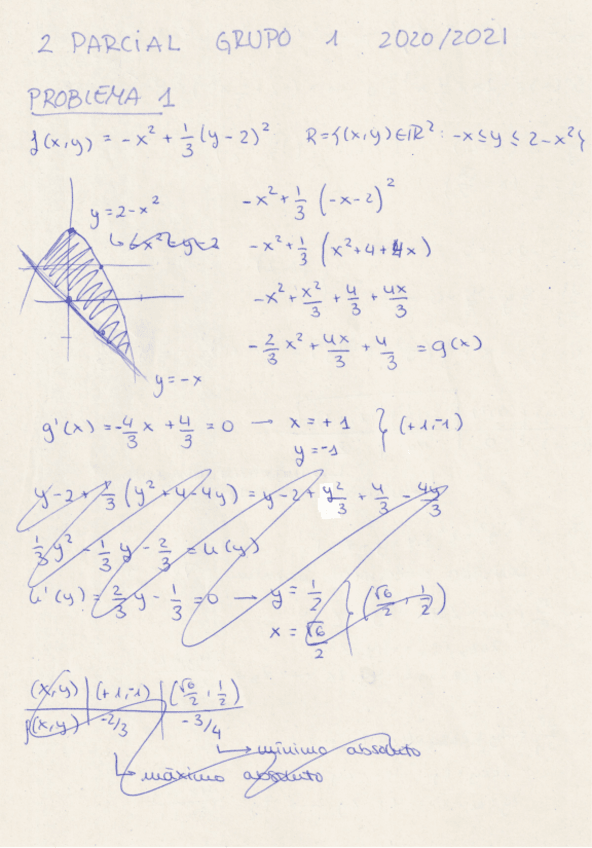 2 PARCIAL GRUPO 1 2020/2021
PROBLEMA 1
f(x,y) = -x² + 1/3 (y-2)² R={(x,y)∈ℝ²: -x≤y≤2-x²}
y=2-x²
-x²+1/3 (-x-2)²
-x²+1/3 (x²+4+4x)
-x²+x²/3+4/3+4x/3
-2/3 x²+4x/3+4/3 =g(x)
y=-x
g'(x)=-4/3 x+4/3=0 → x=+1 } (+1,-1)
y=-1
y-2+1/3 (y²+4-4y)=y-2+y²/3+4/3-4y/3
1/3 y²-1/3 y-2/3=u(y)
u'(y)=2/3 y-1/3=0 → y=1/2 } (√6/2, 1/2)
x=√6/2
(x,y) | (+1,-1) | (√6/2, 1/2)
f(x,y) | -2/3 | -3/4
↳ mínimo absoluto
↳ máximo absoluto